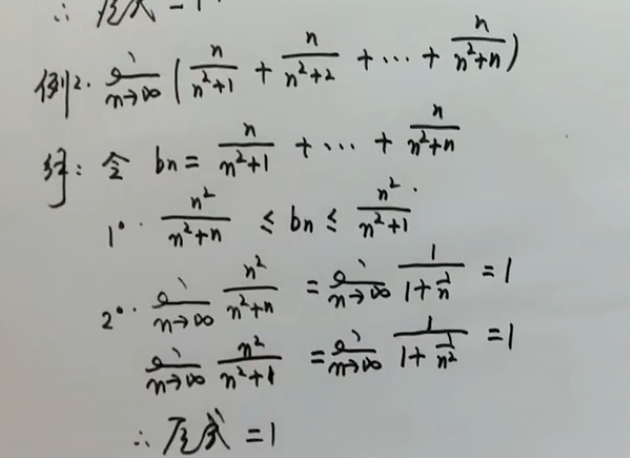 ∴ 原式 = 1
例2. lim n→∞ (n/(n²+1) + n/(n²+2) + ⋯ + n/(n²+n))
解: 令 bn = n/(n²+1) + ⋯ + n/(n²+n)
1°. n²/(n²+n) ≤ bn ≤ n²/(n²+1).
2°. lim n→∞ n²/(n²+n) = lim n→∞ 1/(1+1/n) = 1
lim n→∞ n²/(n²+1) = lim n→∞ 1/(1+1/n²) = 1
∴ 原式 = 1